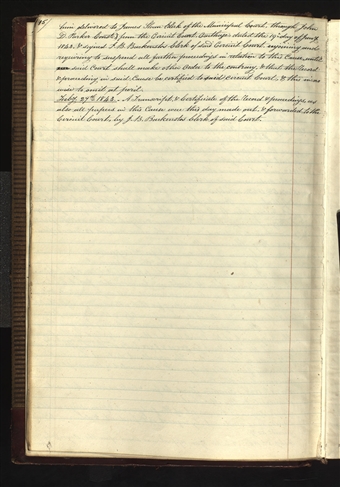 him delivered to James Sloan Clerk of the Municipal Court, through John
D. Parker from the Circuit Court Carthage, dated the 19th day of
1842. & signed J. B. Backenstos Clerk of said Circuit Court, enjoining and
requiring to suspend all further proceedings in relation to this Cause, until
said Court shall make other order to the contrary, & that the Record
& proceedings in said Cause be certified to said Circuit Court, & this in no
wise to omit at peril.
Feby. 27th 1842. A Transcript, & Certificate of the Record & proceedings, as
also all papers in this Cause were this day made out, & forwarded to the
Circuit Court, by J. B. Backenstos Clerk of said Court.